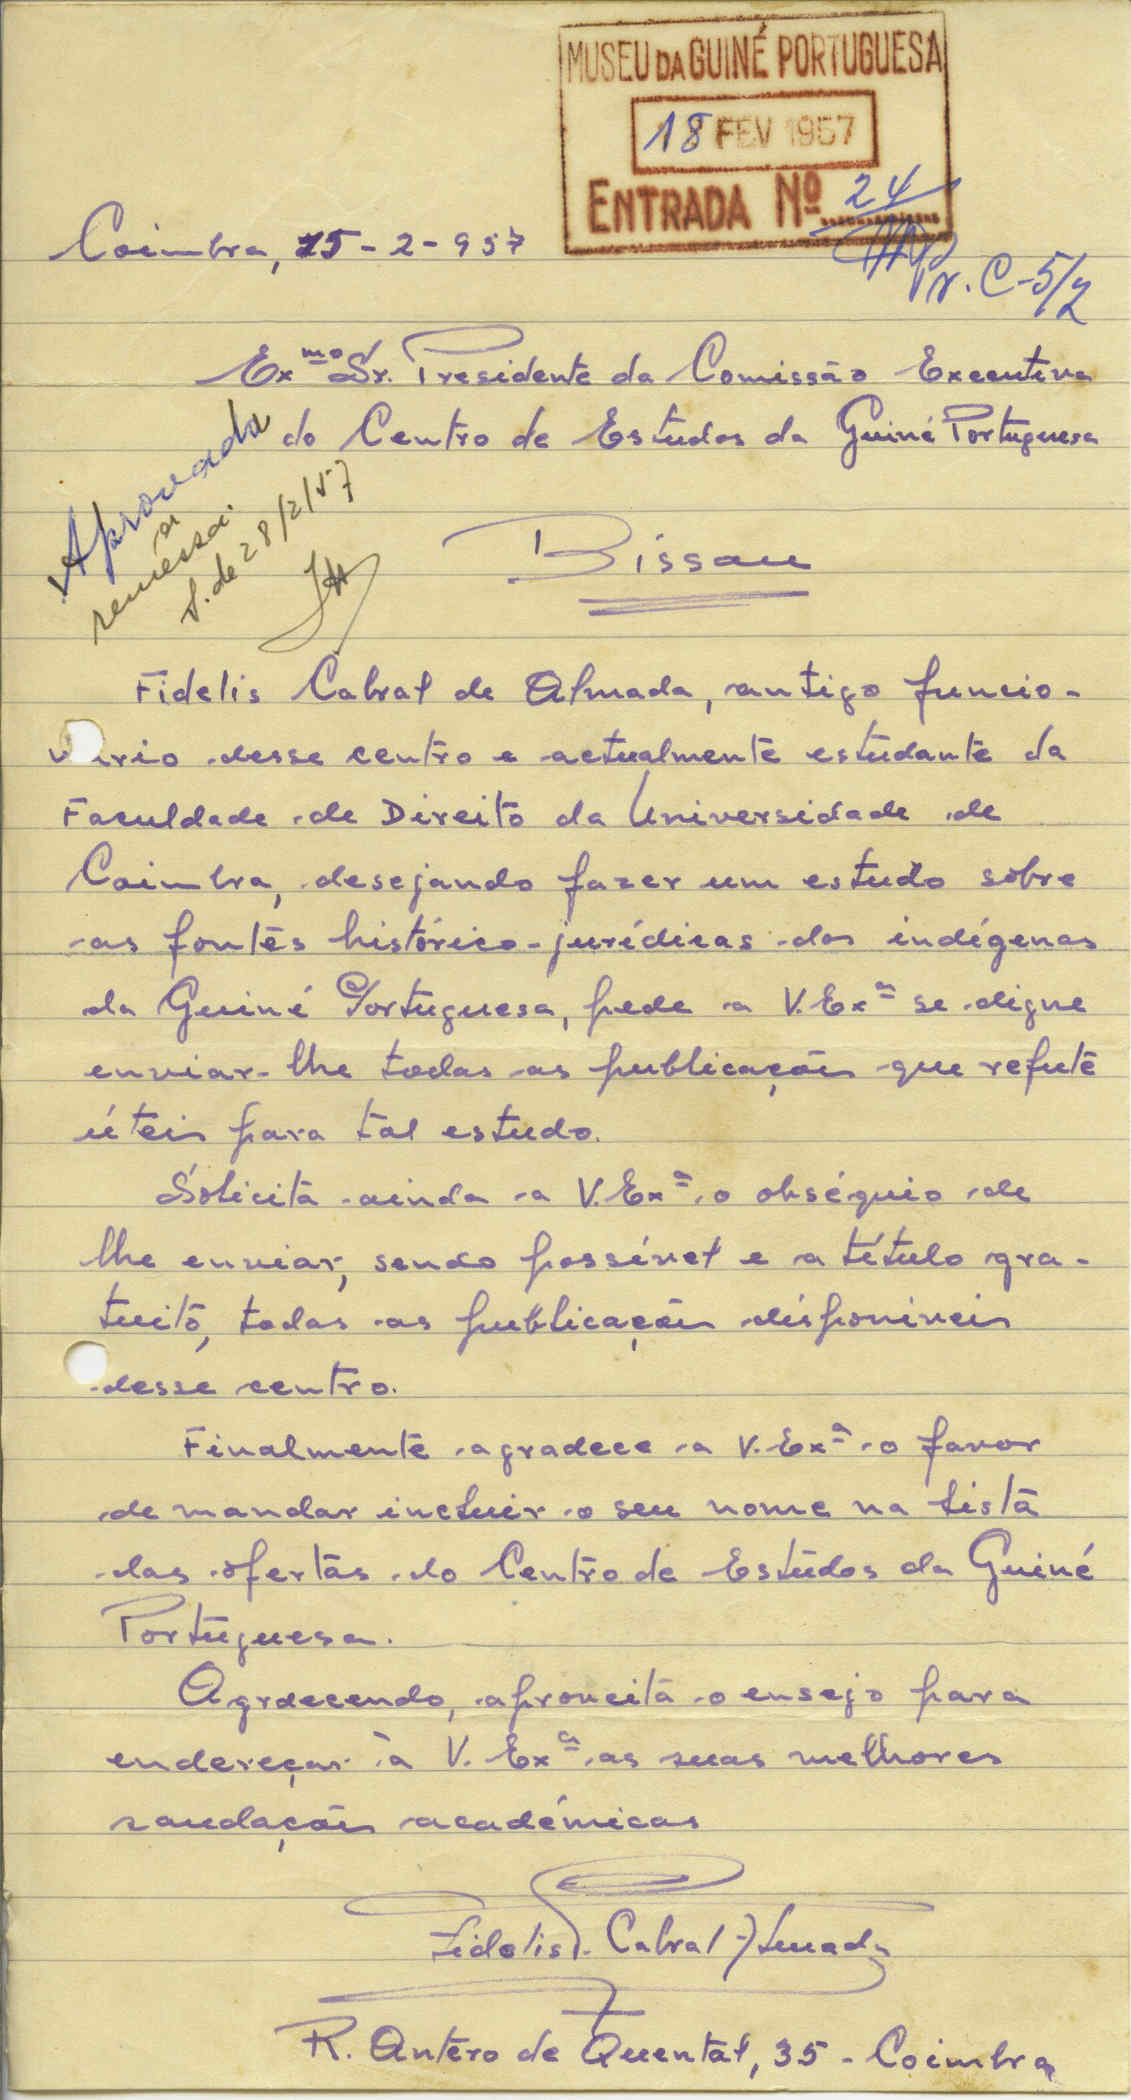 MUSEU DA GUINÉ PORTUGUESA
18 FEV 1957
ENTRADA Nº 24
Coimbra, 15-2-957
Pr. C-5/2
Ex.mo Sr. Presidente da Comissão Executiva
do Centro de Estudos da Guiné Portuguesa
Aprovada
a
remessa.
S. de 28/2/57
Bissau
Fidelis Cabral de Almada, antigo funcio-
nário desse centro e actualmente estudante da
Faculdade de Direito da Universidade de
Coimbra, desejando fazer um estudo sôbre
as fontes histórico-jurídicas dos indígenas
da Guiné Portuguesa, pede a V. Exª se digne
enviar-lhe todas as publicações que repute
úteis para tal estudo.
Solicita ainda a V. Exª o obséquio de
lhe enviar, sendo possível e a título gra-
tuito, todas as publicações disponíveis
desse centro.
Finalmente agradece a V. Exª o favor
de mandar incluir o seu nome na lista
das ofertas do Centro de Estudos da Guiné
Portuguesa.
Agradecendo, aproveita o ensejo para
endereçar à V. Exª as suas melhores
saudações académicas
Fidelis Cabral Almada
R. Antero de Quental, 35 - Coimbra